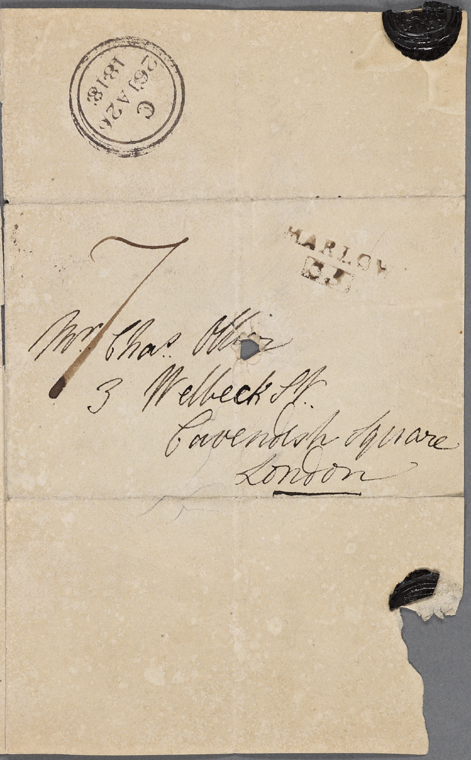 C
26 JA 26
1818
MARLOW
33
7
Mr. Chas. Ollier
3 Welbeck St.
Cavendish Square
London